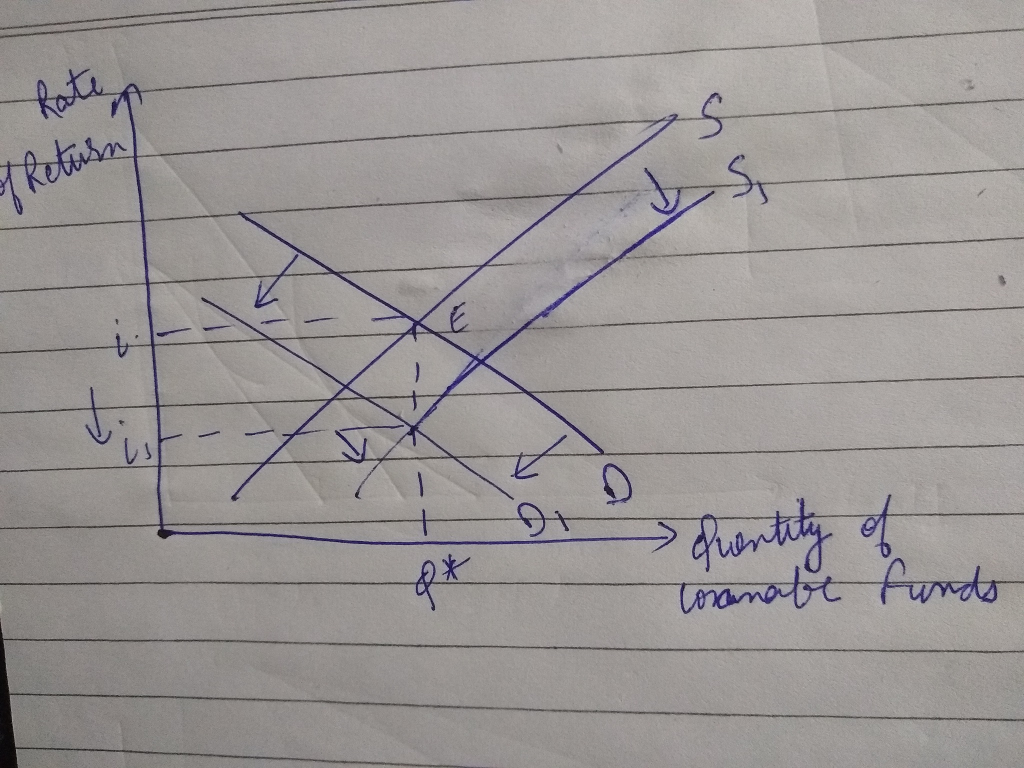 Rate
of Return
S
S₁
i
E
i₁
D
D₁
Q*
Quantity of
loanable funds